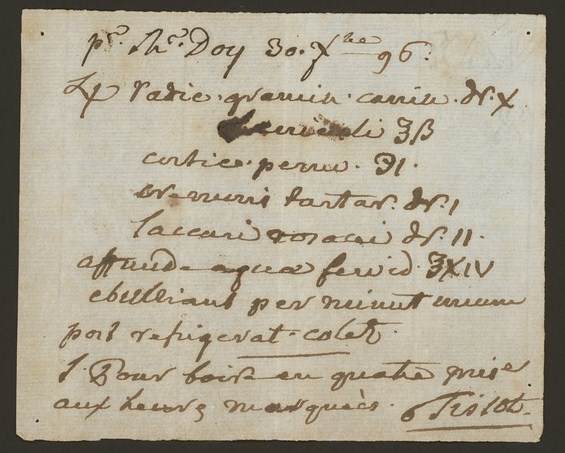 pr. Mr. Doy 30. 7bre 96.
Rp radic. gramin. canin. dr. X
ʒß
cortic. peruv. ℈I.
cremoris tartar. dr. I
saccari rosacei dr. II.
affunde aquae fervid. ℥XIV
ebulliant per minut unum
post refrigerat. colet.
S. Pour boire en quatre prise
aux heures marquées. Tissot.